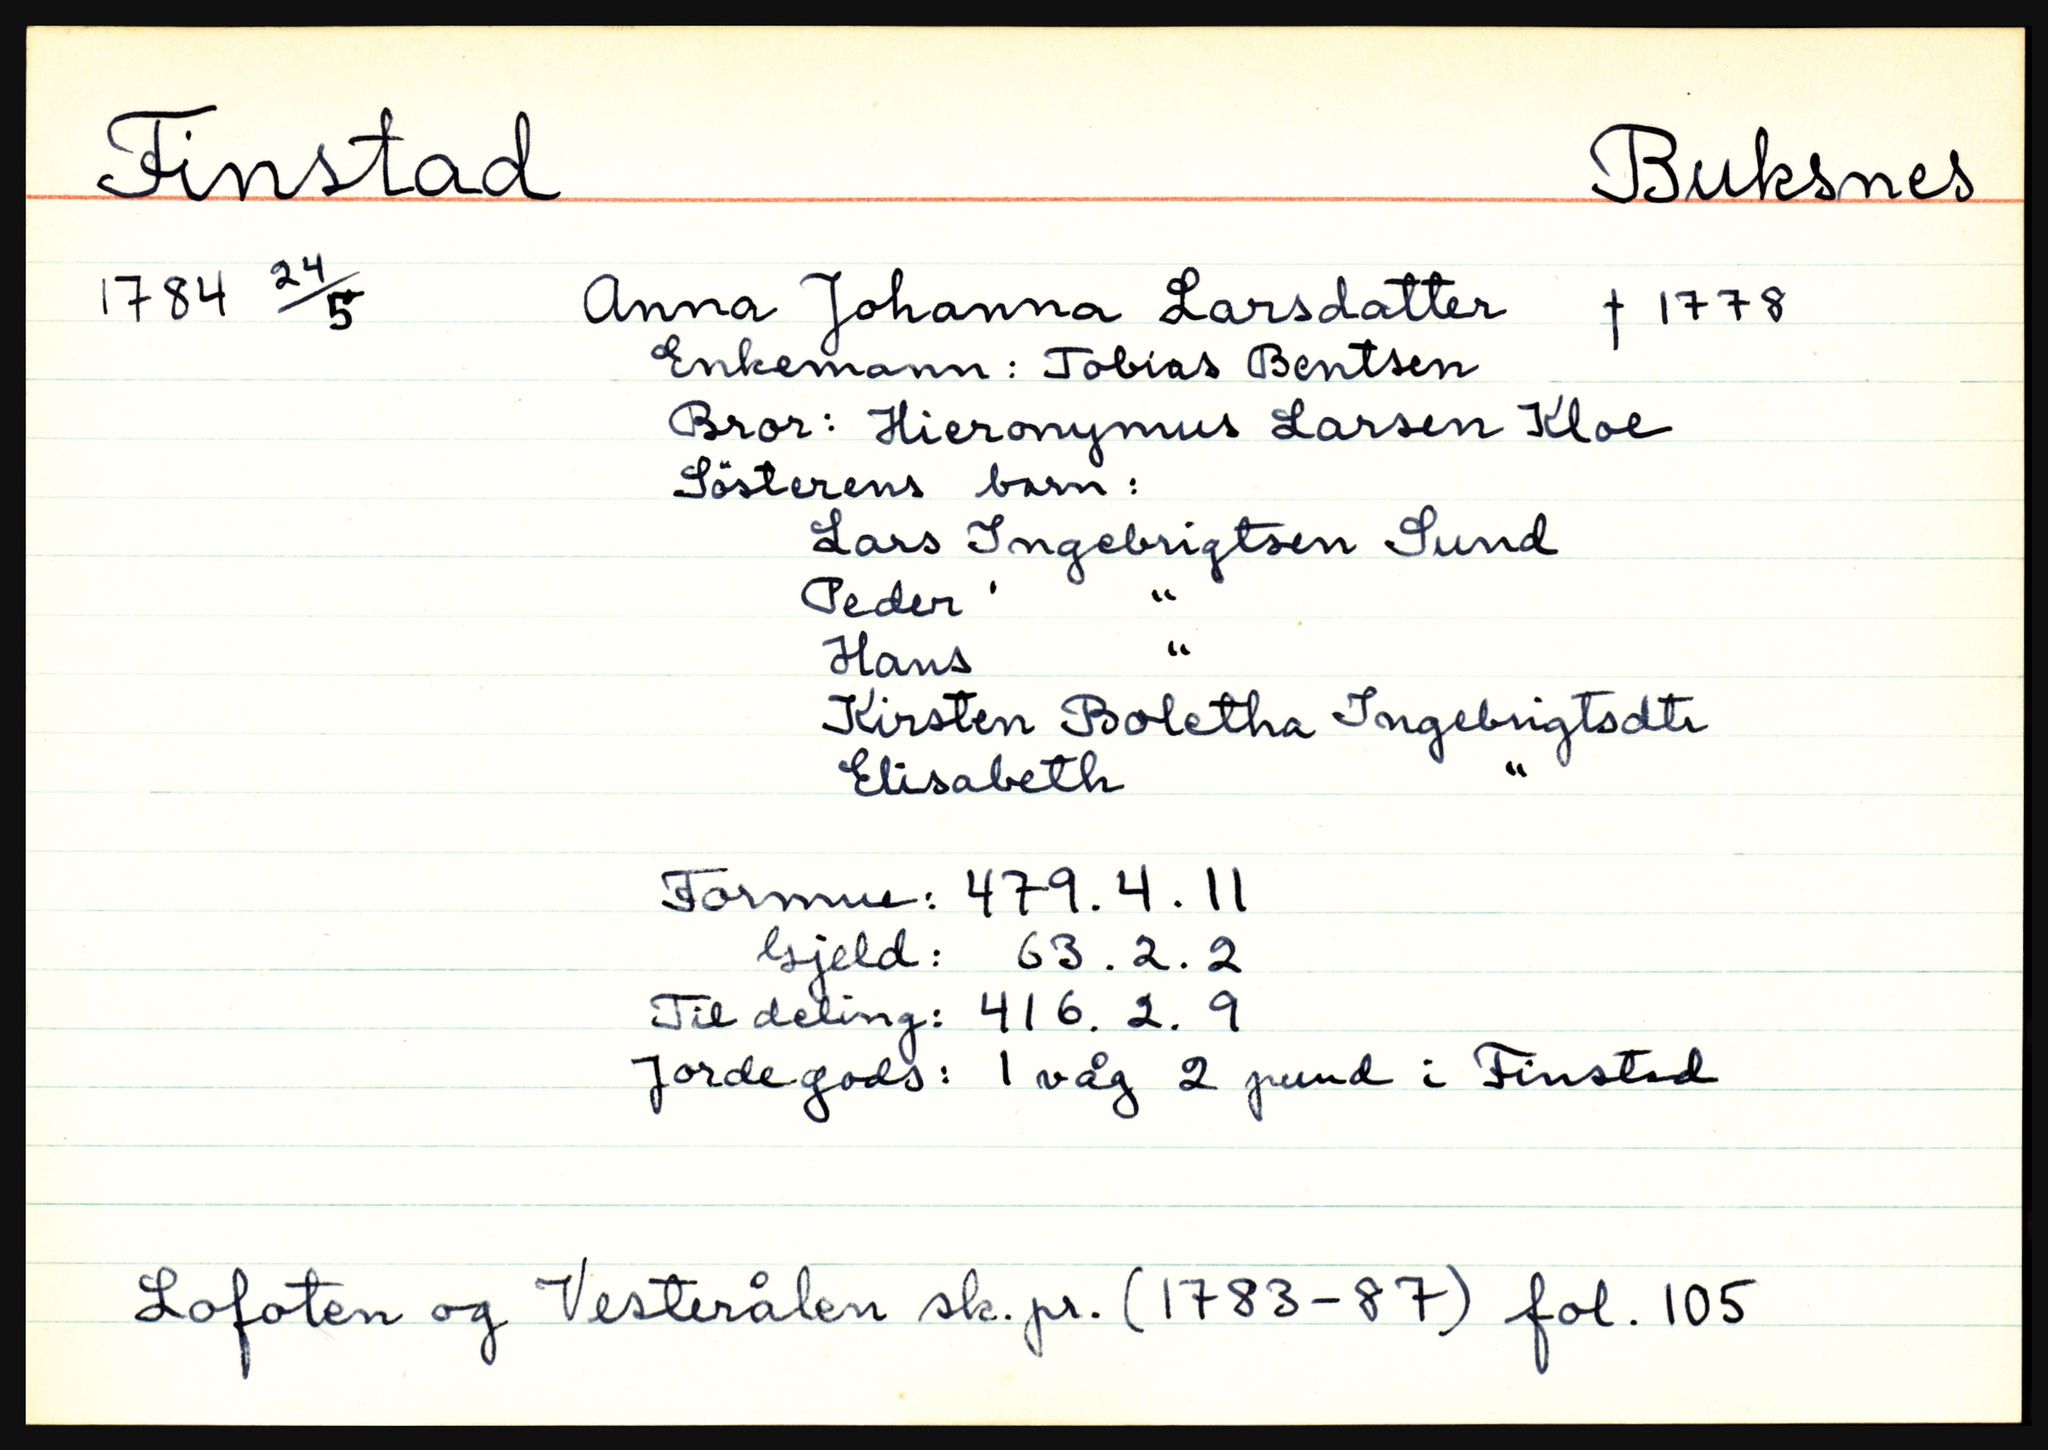 Finstad Buksnes
1784 24/5 Anna Johanna Larsdatter † 1778
Enkemann: Tobias Bentsen
Bror: Hieronymus Larsen Kloe
Sösterens barn:
Lars Ingebrigtsen Sund
Peder ' "
Hans "
Kirsten Boletha Ingebrigtsdtr
Elisabeth "
Formue: 479.4.11
Gjeld: 63.2.2
Til deling: 416.2.9
Jordegods: 1 våg 2 pund i Finstad
Lofoten og Vesterålen sk.pr. (1783-87) fol. 105